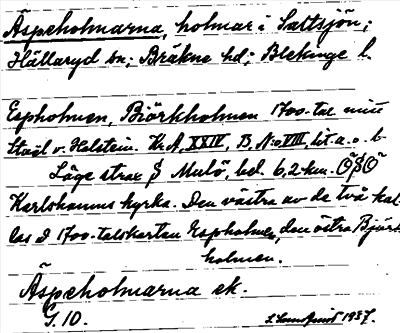 Äspeholmarna, holmar i Saltsjön;
Hällaryd sn; Bräkne hd; Blekinge l.
Espholmen, Björkholmen 1700-tal
Staël v. Holstein. Kr.A, XXIV, B. N:o VIII, lit. a. o. b
Läge strax S Mulö, bel. 6,2 km. ÖSÖ
Karlshamns kyrka. Den västra av de två kal-
las å 1700-talskartan Espholmen, den östra Björk-
holmen.
Äspeholmarna ek.
G. 10.
1937.